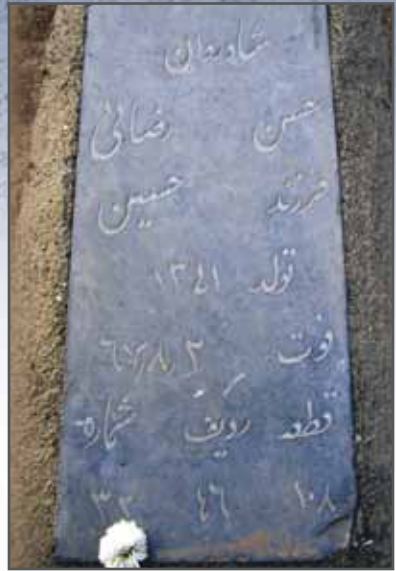 شادروان
حسن رضائی
فرزند حسین
تولد ۱۳۴۱
فوت
قطعه ردیف شماره
۱۰۸ ۴۶ ۳۲